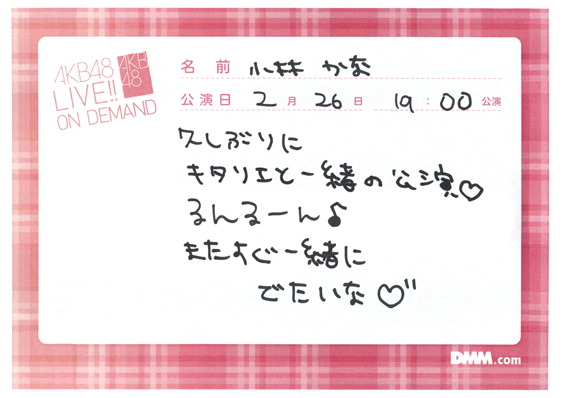 AKB48
LIVE!!
ON DEMAND
AKB
48
名前 小林 かな
公演日 2月26日 19:00公演
久しぶりに
キタリエと一緒の公演♡
るんるーん♪
またすぐ一緒に
でたいな♡"
DMM.com